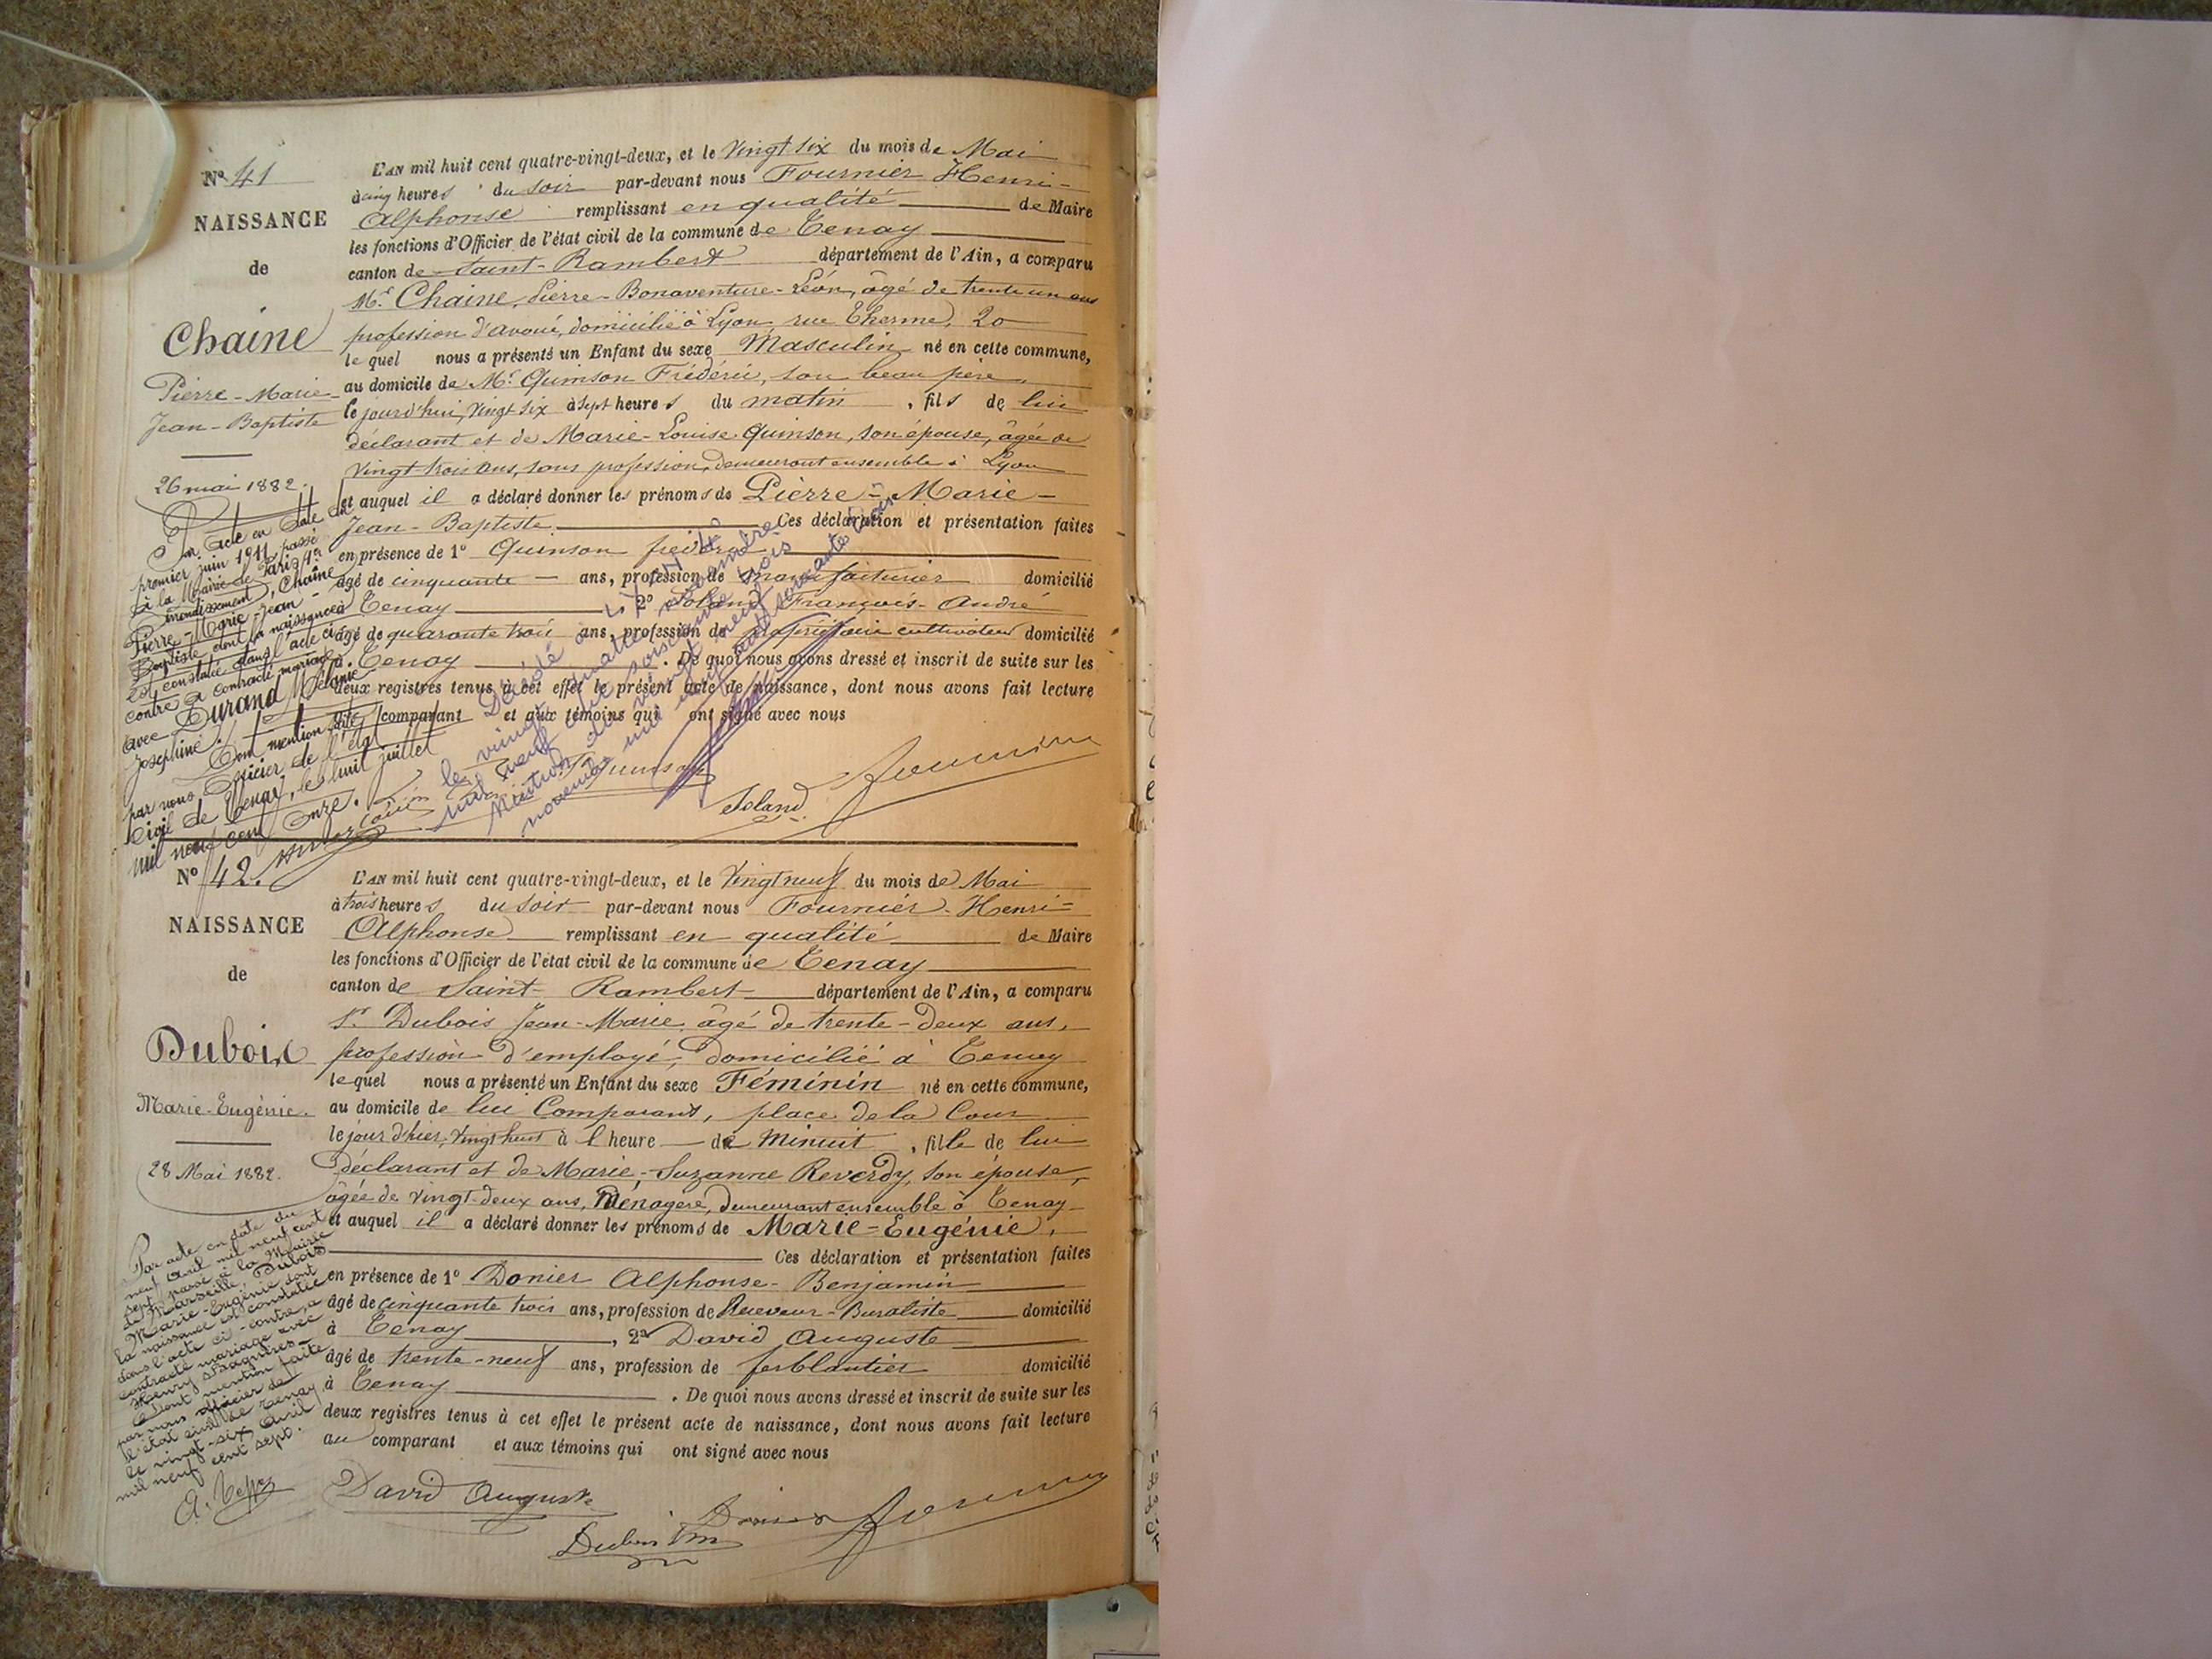 No 41
NAISSANCE
de
Chaine
Pierre-Marie-
Jean-Baptiste
26 mai 1882.
L'AN mil huit cent quatre-vingt-deux, et le Vingt six du mois de Mai
à cinq heures du soir par-devant nous Fournier Henri-
Alphonse remplissant en qualité de Maire
les fonctions d'Officier de l'état civil de la commune de Tenay
canton de Saint-Rambert département de l'Ain, a comparu
Mr. Chaine, Pierre-Bonaventure-Léon, âgé de trente un ans
profession d'avoué, domicilié à Lyon, rue Therme, 20
le quel nous a présenté un Enfant du sexe Masculin né en cette commune,
au domicile de Mr. Quinson Frédéric, son beau père,
le jourd'hui, Vingt six à sept heures du matin, fils de lui
déclarant et de Marie-Louise Quinson, son épouse, âgée de
vingt trois ans, sans profession, demeurant ensemble à Lyon
et auquel il a déclaré donner les prénoms de Pierre-Marie-
Jean-Baptiste Ces déclaration et présentation faites
en présence de 1° Quinson
âgé de cinquante ans, profession de manufacturier domicilié
à Tenay 2° François-André
âgé de quarante trois ans, profession de propriétaire cultivateur domicilié
à Tenay. De quoi nous avons dressé et inscrit de suite sur les
deux registres tenus à cet effet le présent acte de naissance, dont nous avons fait lecture
comparant et aux témoins qui ont signé avec nous
Un acte en date du
premier juin 1911 passé
à la Mairie de Paris
arrondissement, Chaine
Pierre-Marie-Jean-
Baptiste dont la naissance
est constatée dans l'acte ci-
contre a contracté mariage
avec Durand Mélanie
Joséphine. Dont mention faite
par nous Officier de l'état
Civil de Tenay, le huit juillet
mil neuf cent onze.
Décédé à
le vingt quatre novembre
mil neuf cent soixante trois
Mention du vingt neuf
novembre mil neuf cent soixante trois
Quinson
Soland
Fournier
No 42.
NAISSANCE
de
Dubois
Marie-Eugénie.
28 Mai 1882.
L'AN mil huit cent quatre-vingt-deux, et le Vingt neuf du mois de Mai
à trois heures du soir par-devant nous Fournier-Henri-
Alphonse remplissant en qualité de Maire
les fonctions d'Officier de l'état civil de la commune de Tenay
canton de Saint-Rambert département de l'Ain, a comparu
Sr. Dubois Jean-Marie, âgé de trente-deux ans,
profession d'employé, domicilié à Tenay
le quel nous a présenté un Enfant du sexe Féminin né en cette commune,
au domicile de lui Comparant, place de la Cour
le jour d'hier, vingt huit à l heure de Minuit, fille de lui
déclarant et de Marie-Suzanne Reverdy, son épouse,
âgée de vingt-deux ans, Ménagère, demeurant ensemble à Tenay
et auquel il a déclaré donner les prénoms de Marie-Eugénie,
Ces déclaration et présentation faites
en présence de 1° Donier Alphonse-Benjamin
âgé de cinquante trois ans, profession de Receveur-Buraliste domicilié
à Tenay, 2° David Auguste
âgé de trente-neuf ans, profession de ferblantier domicilié
à Tenay. De quoi nous avons dressé et inscrit de suite sur les
deux registres tenus à cet effet le présent acte de naissance, dont nous avons fait lecture
au comparant et aux témoins qui ont signé avec nous
Par acte en date du
neuf avril mil neuf cent
sept, passé à la Mairie
de Marseille, Dubois
Marie-Eugénie dont
la naissance est constatée
dans l'acte ci-contre, a
contracté mariage avec
Henry
Dont mention faite
par nous officier de
l'état civil de Tenay
le vingt-six Avril
mil neuf cent sept.
David Auguste
Dubois Jm
Donier
Fournier